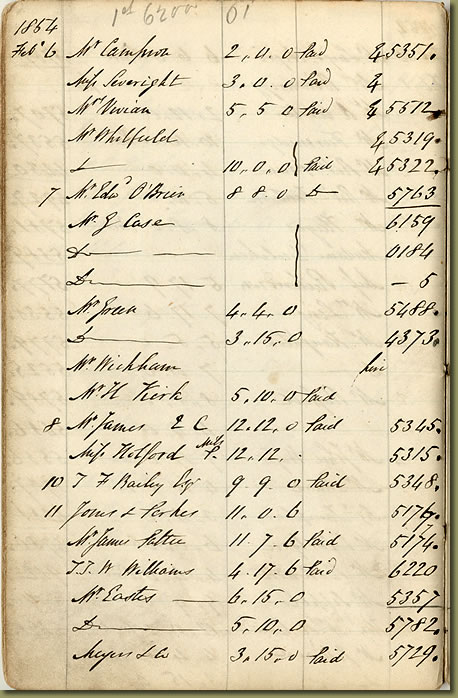 1st 6200 01
1854
Feby 6 Mr Campion 2.. 0.. 0 Paid & 5351.
Miss Severight 3.. 0.. 0 Paid &
Mrs Vivian 5.. 5.. 0 Paid & 5512
Mr Whitfield & 5319.
Do 10.. 0.. 0 Paid & 5322.
7 Mr Edwd O'Brien 8 8.. 0 Do 5763
Mr G Case 6159
Do 0184
Do — 5
Mr Green 4.. 4.. 0 5488.
Do 3.. 15.. 0 4373.
Mr Wickham hire
Mr H Kirk 5.. 10.. 0 Paid
8 Mr James 2 C 12.. 12.. 0 Paid 5345.
Miss Holford 12.. 12.. 5315.
10 T F Bailey Esqr 9.. 9.. 0 Paid 5348.
11 Jones & Forkes 11.. 0.. 6 5176.
Mr James 11.. 7.. 6 Paid 5174.
T.J. W Williams 4.. 17.. 6 Paid 6220
Mr Eastes 6.. 15.. 0 5357
Do 5.. 10.. 0 5782.
Meyers & Co 3.. 15.. 0 Paid 5729.